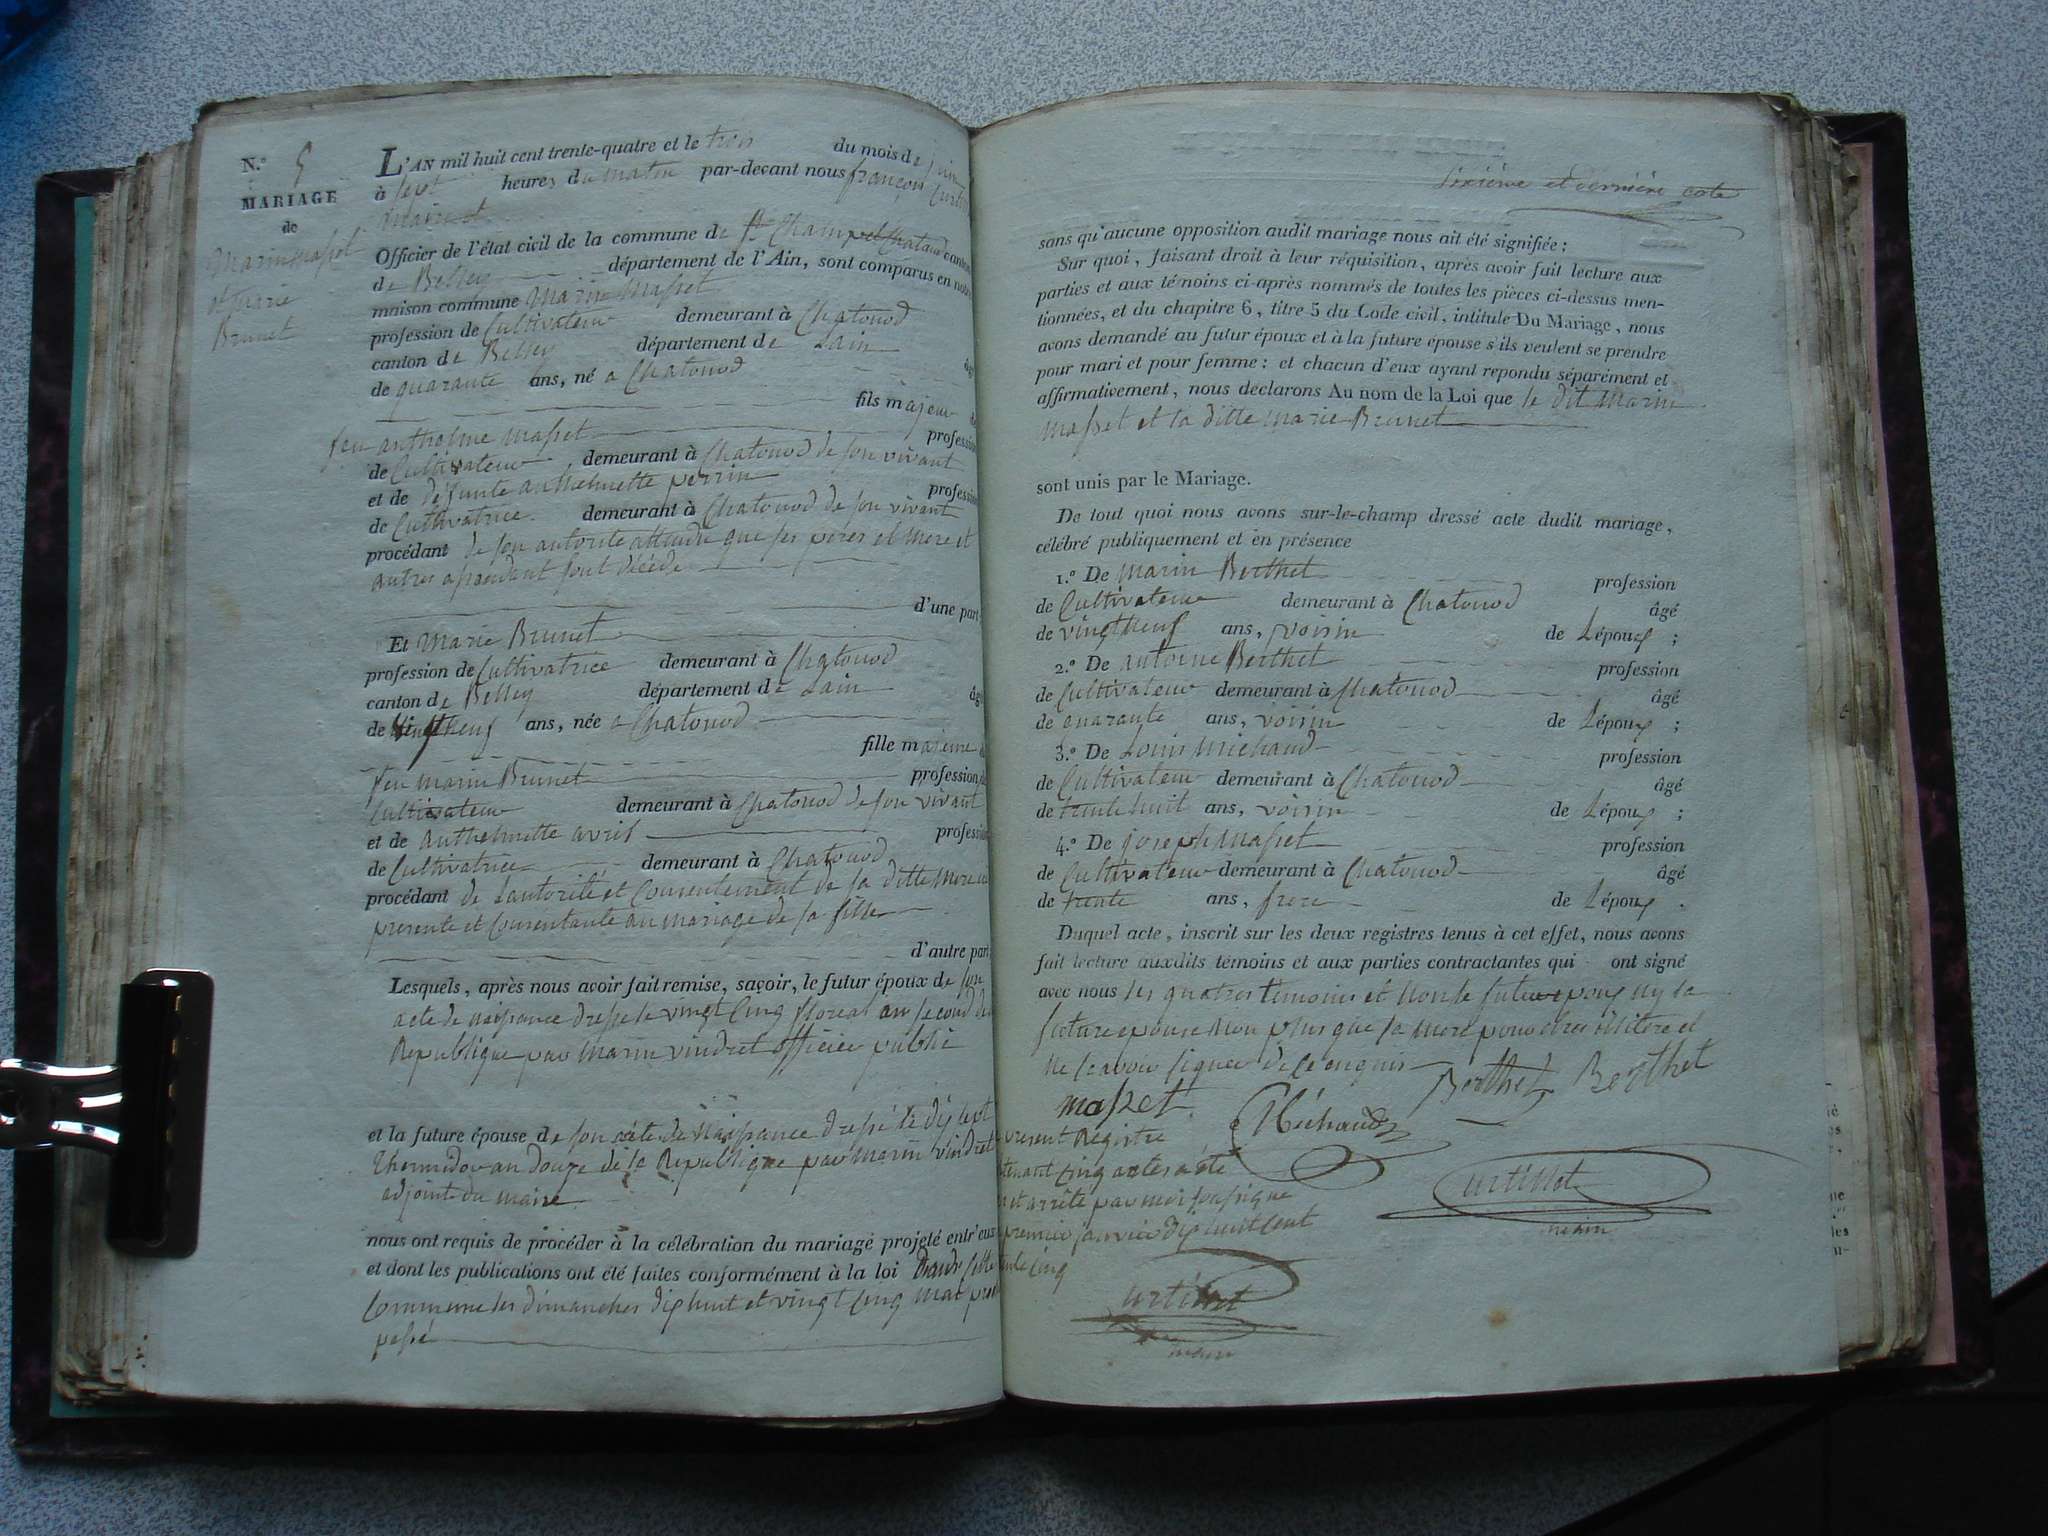 N.º 5
MARIAGE
de
Marin Masset
et Marie
Brunet
L'AN mil huit cent trente-quatre et le trois du mois de juin
à sept heures du matin par-devant nous françois
Officier de l'état civil de la commune de St Champ Chatonod canton
de Belley département de l'Ain, sont comparus en notre
maison commune Marin Masset
profession de Cultivateur demeurant à Chatonod
canton de Belley département de Lain âgé
de quarante ans, né a Chatonod
fils majeur de
feu anthelme Masset profession
de Cultivateur demeurant à Chatonod de son vivant
et de défunte anthelmette perrin profession
de Cultivatrice demeurant à Chatonod de son vivant
procédant de son autorite attendu que ses pères et Mere et
autres ascendant sont décédé
d'une part,
Et Marie Brunet
profession de Cultivatrice demeurant à Chatonod
canton de Belley département de Lain âgé
de vingtneuf ans, née a Chatonod
fille majeure de
feu marin Brunet profession de
Cultivateur demeurant à Chatonod de son vivant
et de anthelmette avril profession
de Cultivatrice demeurant à Chatonod
procédant de Lautorité et Consentement de sa ditte Mere
presente et Consentante au mariage de sa fille
d'autre part
Lesquels, après nous avoir fait remise, saçoir, le futur époux de son
acte de naissance dressé le vingt Cinq floreal an second de la
Republique par Marin vindret officier public
et la future épouse de son acte de Naissance dressé le dix sept
Thermidor an douze de la Republique par Marin vindret
adjoint du maire
nous ont requis de procéder à la célébration du mariage projeté entr'eux
et dont les publications ont été faites conformément à la loi dans cette
Commune les dimanches dix huit et vingt Cinq Mai
passé
Sixième et dernière cote
sans qu'aucune opposition audit mariage nous ait été signifiée;
Sur quoi, faisant droit à leur réquisition, après avoir fait lecture aux
parties et aux témoins ci-après nommés de toutes les pièces ci-dessus men-
tionnées, et du chapitre 6, titre 5 du Code civil, intitulé Du Mariage, nous
avons demandé au futur époux et à la future épouse s'ils veulent se prendre
pour mari et pour femme: et chacun d'eux ayant repondu séparément et
affirmativement, nous déclarons Au nom de la Loi que le dit Marin
Masset et la ditte Marie Brunet
sont unis par le Mariage.
De tout quoi nous avons sur-le-champ dressé acte dudit mariage,
célébré publiquement et en présence
1.º De Marin Berthet profession
de Cultivateur demeurant à Chatonod âgé
de vingtneuf ans, voisin de Lépoux;
2.º De antoine Berthet profession
de Cultivateur demeurant à Chatonod âgé
de quarante ans, voisin de Lépoux;
3.º De Louis Michaud profession
de Cultivateur demeurant à Chatonod âgé
de trente huit ans, voisin de Lépoux;
4.º De joseph Masset profession
de Cultivateur demeurant à Chatonod âgé
de trente ans, frere de Lépoux.
Duquel acte, inscrit sur les deux registres tenus à cet effet, nous avons
fait lecture auxdits témoins et aux parties contractantes qui ont signé
avec nous les quatres témoins et Non le futur epoux Ny la
future epouse Non plus que sa mere pour etres illitere et
Ne savoir signer de ce enquis
Berthet Berthet
Masset Michaud
present Registre
tenant Cinq actes a été
et arrêté par moi soussigné
premier janvier dix huit Cent
trente Cinq
Curtillet
maire
Curtillet
maire